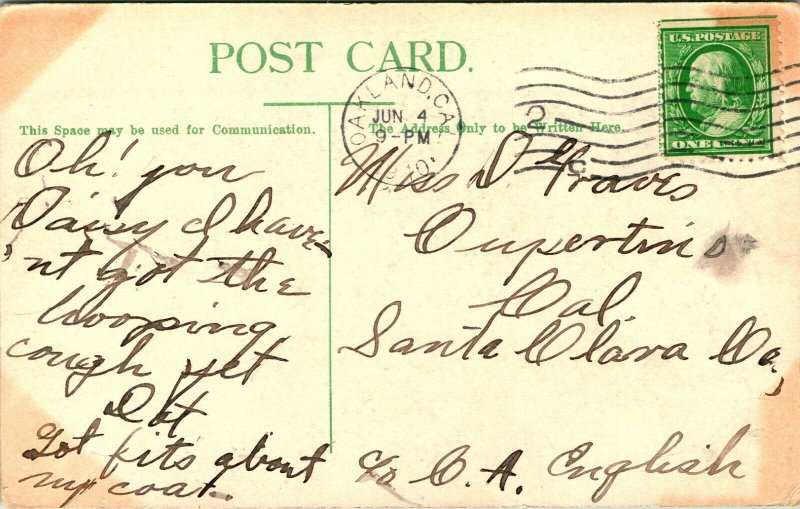 POST CARD.
This Space may be used for Communication.
The Address Only to be Written Here.
OAKLAND, CAL.
JUN 4
9-PM
1910
U.S. POSTAGE
ONE CENT
2
Oh! you
Daisy I have
'nt got the
hooping
cough yet
Dot
Got fits about
my coat.
Miss D. Graves
Cupertino
Cal.
Santa Clara Co,
c/o C. A. English